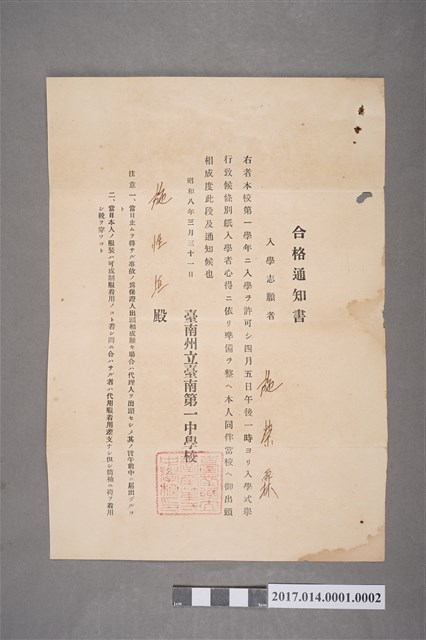 合格通知書
入學志願者 施榮森
右者本校第一學年ニ入學ヲ許可シ四月五日午後一時ヨリ入學式擧
行致候條別紙入學者心得ニ依リ準備ヲ整ヘ本人同伴當校ヘ御出頭
相成度此段及通知候也
昭和八年三月三十一日
臺南州立臺南第一中學校
施性 殿
注意 一、當日止ムヲ得サル事故ノ爲保證人出頭相成難キ場合ハ代理人ヲ出頭セシメ其ノ旨午前中ニ屆出ヅルコ
ト
二、當日本人ノ服裝ハ可成制服着用ノコト若シ間ニ合ハサル者ハ代用服着用差支ナシ但シ筒袖ニ袴ヲ着用
シ靴ヲ穿ツコト
2017.014.0001.0002